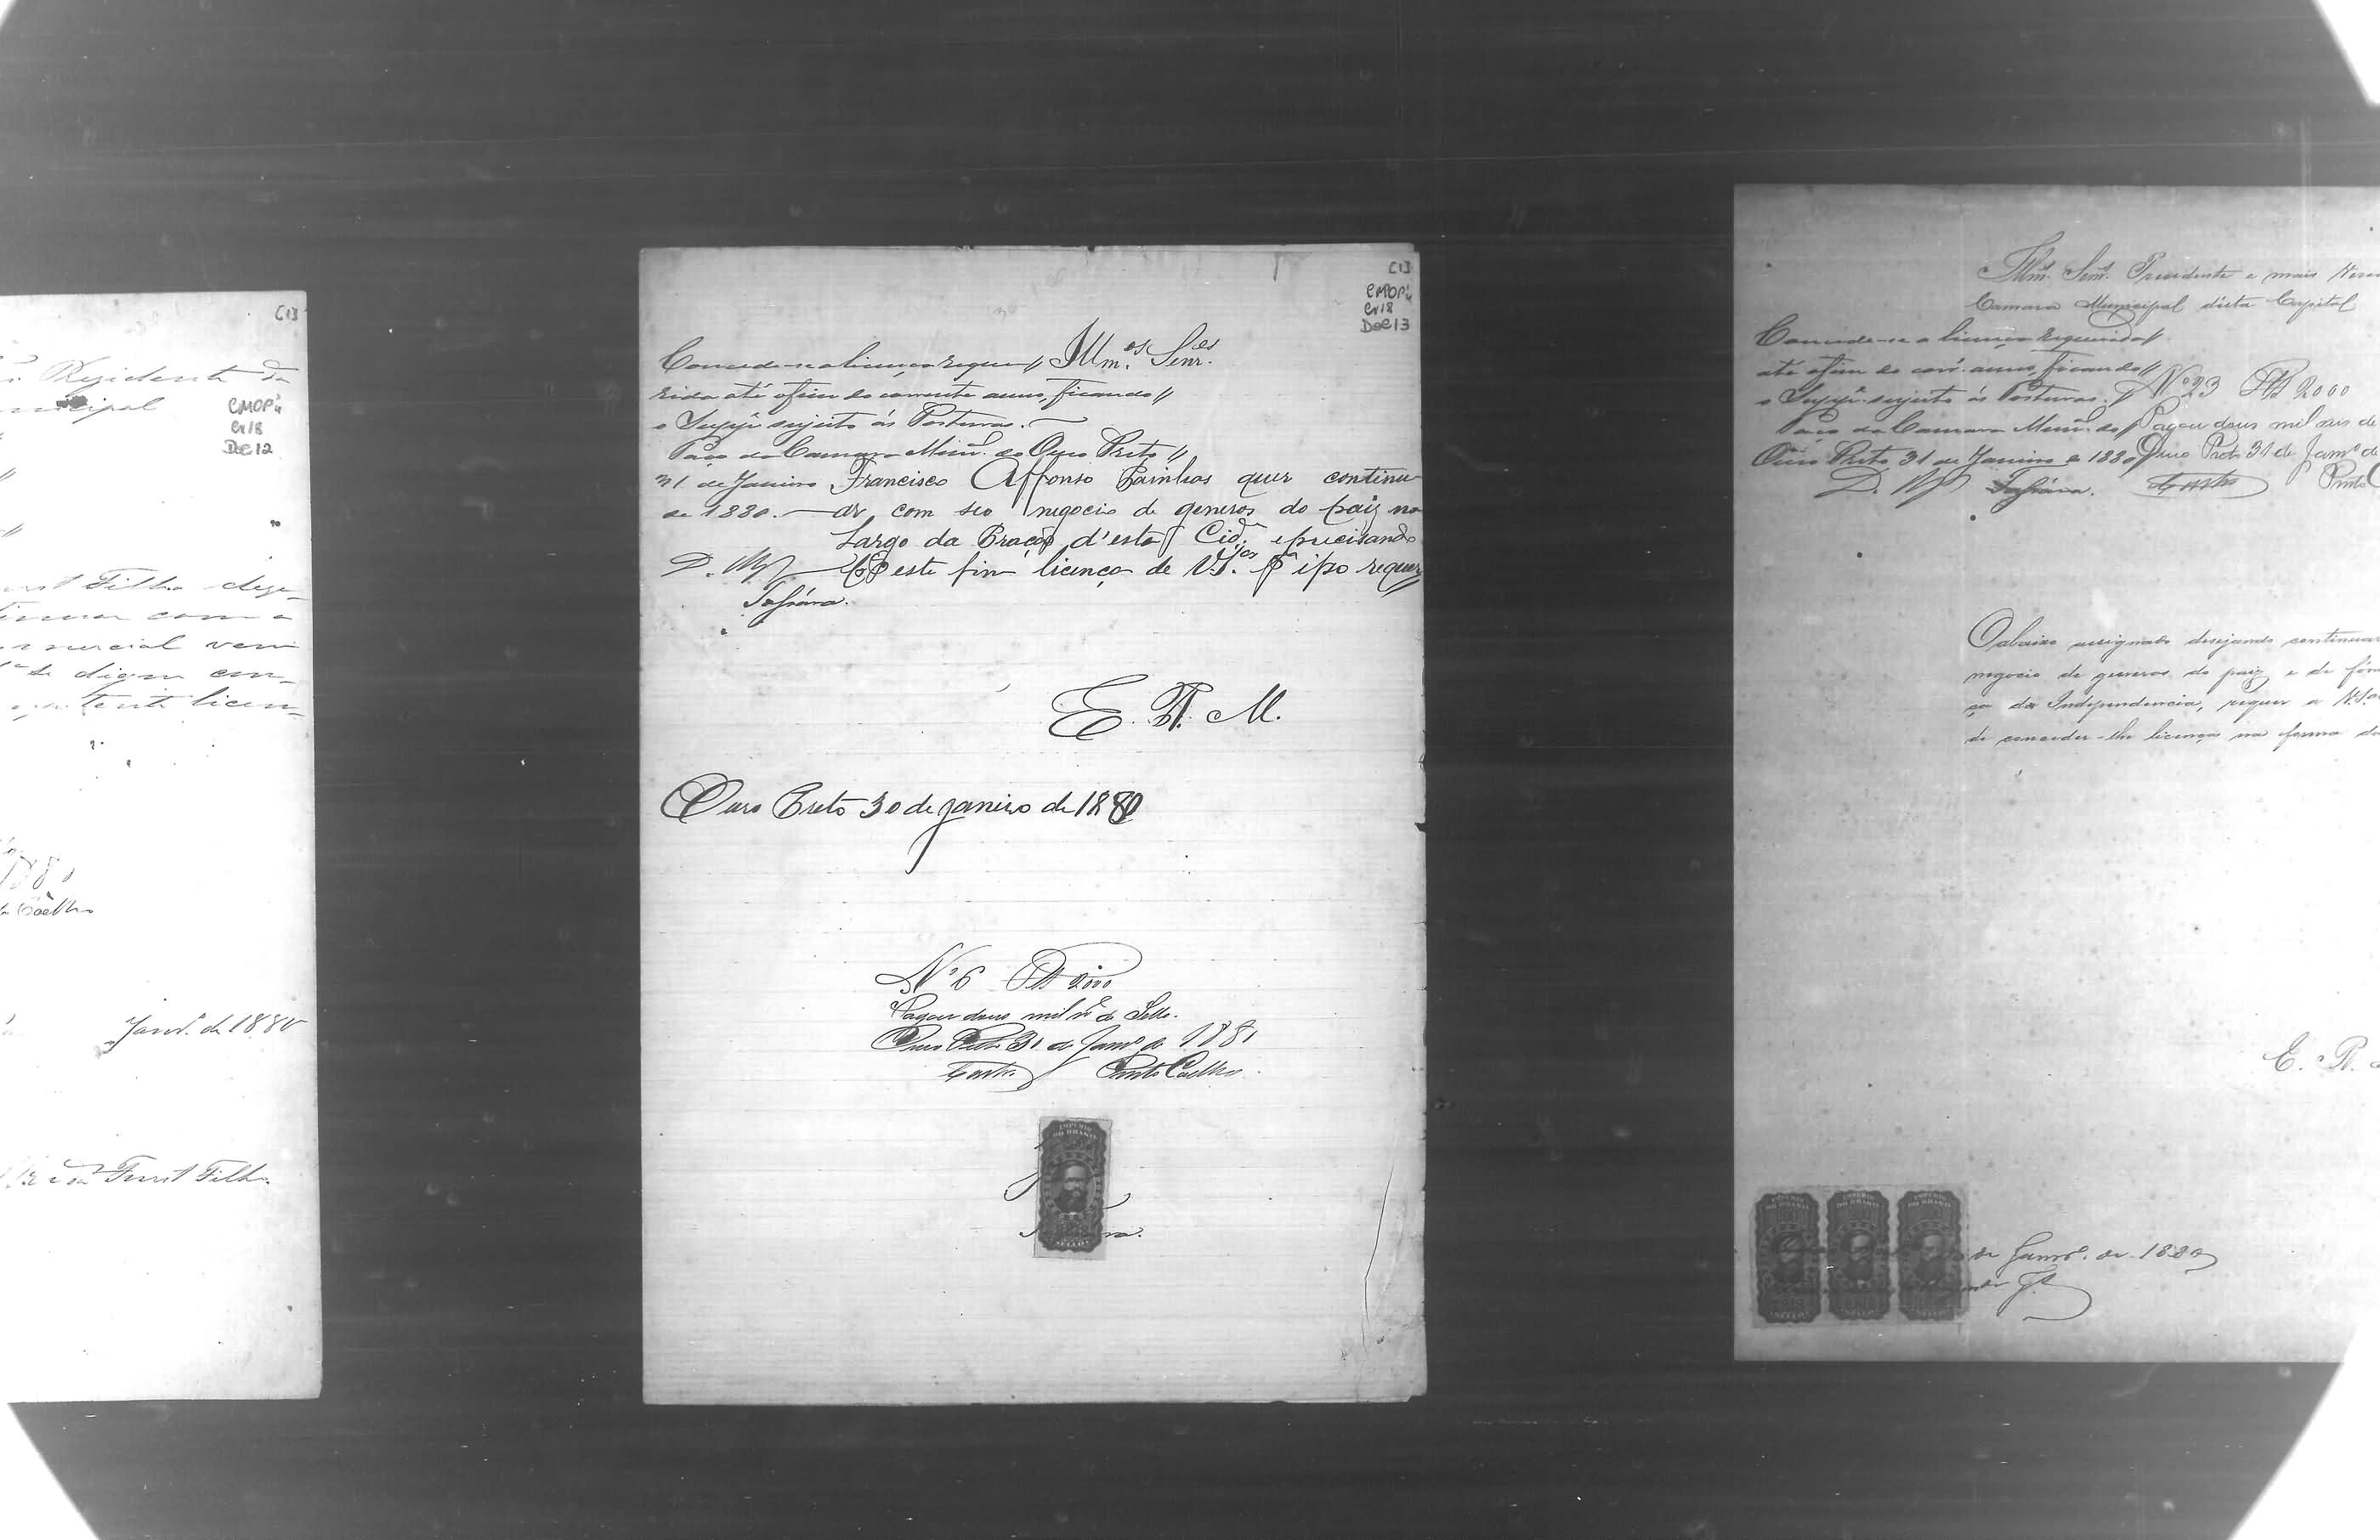 [1]
Rezidente da
CMOP
Cx18
Doc 12
Filho
com a
vem
digne con
licen
Coelho
Janr.º de 1880
Furst Filho.
[1]
CMOP
Cx18
Doc 13
Illm.ºs Senr.es
Concede-se a licença reque //
rida até o fim do corrente anno, ficando //
o Supp.e sujeito ás Posturas.
Paço da Camara Mun.al do Ouro Preto //
31 de Janeiro
de 1880.
Francisco Affonso Painhas quer continu
ar com seo negocio de generos do paiz no
Largo da Praça d'esta Cid.e e precizando
p.a este fim licença de V.S.as p.a isso requer //
E. R. M.
Ouro Preto 30 de janeiro de 1880
Nº 6 Rs 2000
Pagou dous mil rs de Sello.
Ouro Preto 31 de Janrº de 1881
Castro Pinto Coelho
IMPERIO
DO BRASIL
Illm.os Senr.es Presidente e mais Verea
Camara Municipal d'esta Capital
Concede-se a licença requerida //
até o fim do corr.e anno, ficando //
o Supp.e sujeito ás Posturas.
Paço da Camara Mun.al do
Ouro Preto 31 de Janeiro de 1880
Nº 23 Rs 2000
Pagou dous mil reis de
Ouro Preto 31 de Janrº de
Castro Pinto C
O abaixo assignado desejando continuar
negocio de generos do paiz e de fóra
ça da Independencia, requer a V.S.as
de conceder-lhe licença na forma da
E. R.
de Janrº. de 1880
IMPERIO
DO BRASIL
IMPERIO
DO BRASIL
IMPERIO
DO BRASIL